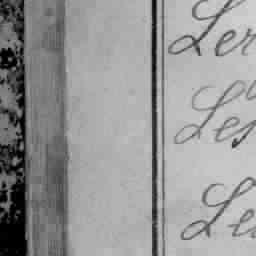 Ler
Les
Le